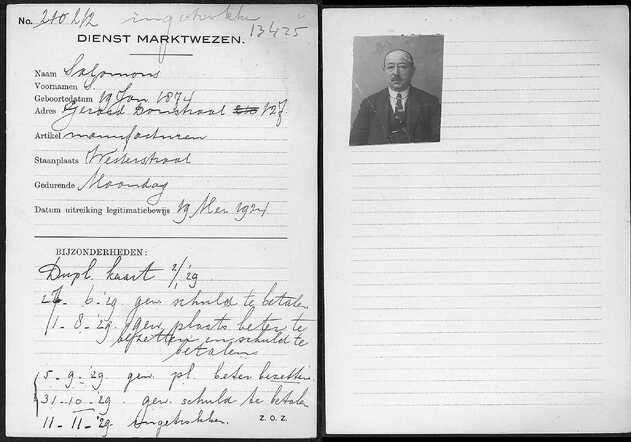 No. 210 2/2 ingetrokken 13425
DIENST MARKTWEZEN.
Naam Salomons
Voornamen S.
Geboortedatum 19 Jan 1874
Adres Gerard Doustraat 127
Artikel manufacturen
Staanplaats Westerstraat
Gedurende Maandag
Datum uitreiking legitimatiebewijs 19 Mei 1924
BIJZONDERHEDEN:
Dupl. kaart 2/1 '29
27 - 6 - '29 gew. schuld te betalen
1 - 8 - '29 gew. plaats beter te
bezetten en schuld te
betalen
5 - 9 - '29 gew. pl. beter bezetten
31 - 10 - '29 gew. schuld te betalen
11 - 11 - '29 Ingetrokken.
z.o.z.